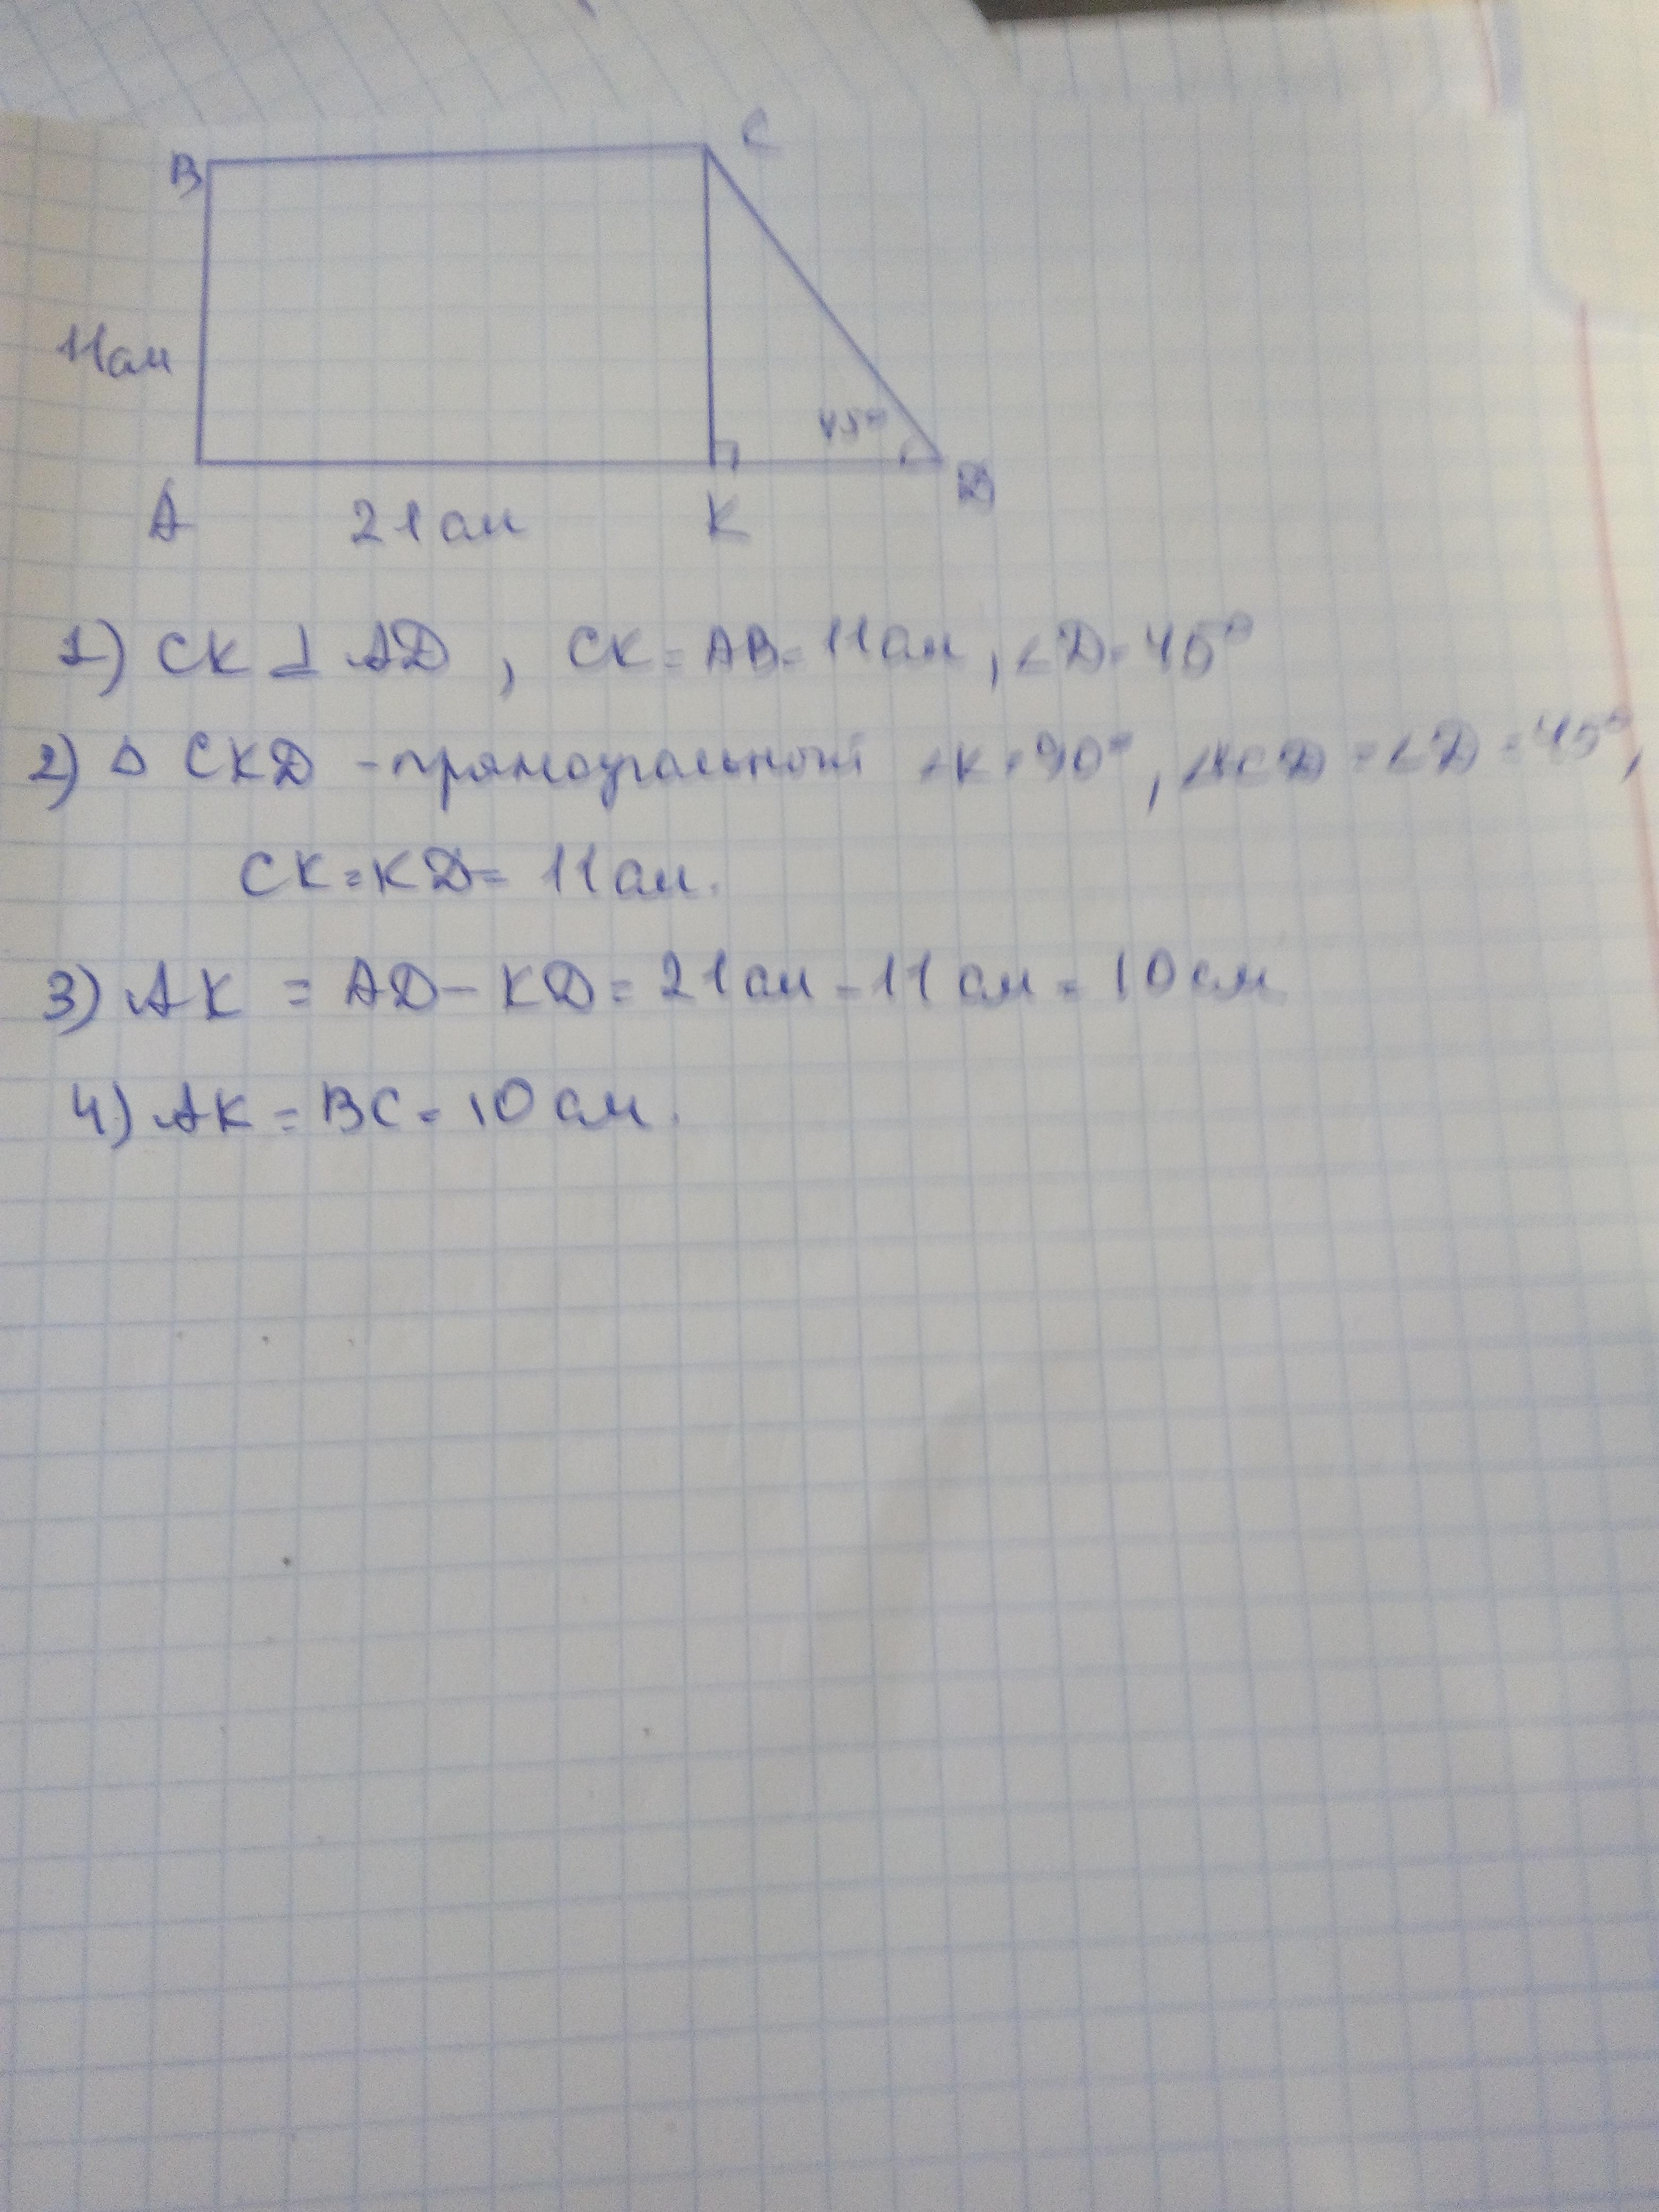 B C
11см
45°
A 21см K D
1) CK ⊥ AD , CK = AB = 11см, ∠D = 45°
2) △ CKD - прямоугольный ∠K = 90°, ∠KCD = ∠D = 45°,
CK = KD = 11см.
3) AK = AD - KD = 21см - 11см = 10см
4) AK = BC = 10см.